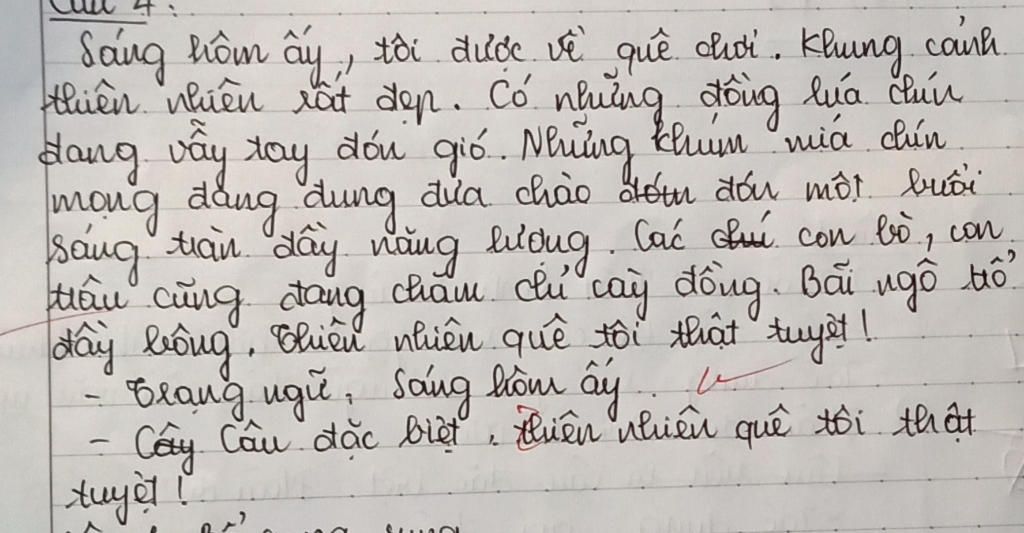 Câu 4:
Sáng hôm ấy, tôi được về quê chơi. Khung cảnh
thiên nhiên rất đẹp. Có những đồng lúa chín
đang vẫy tay đón gió. Những khúm mía chín
mọng đang dung đưa chào đón một buổi
sáng tràn đầy năng lượng. Các con bò, con
trâu cũng đang chăm chỉ cày đồng. Bãi ngô trổ
đầy bông. Thiên nhiên quê tôi thật tuyệt!
- Trạng ngữ: Sáng hôm ấy
- Câu đặc biệt: thiên nhiên quê tôi thật
tuyệt!